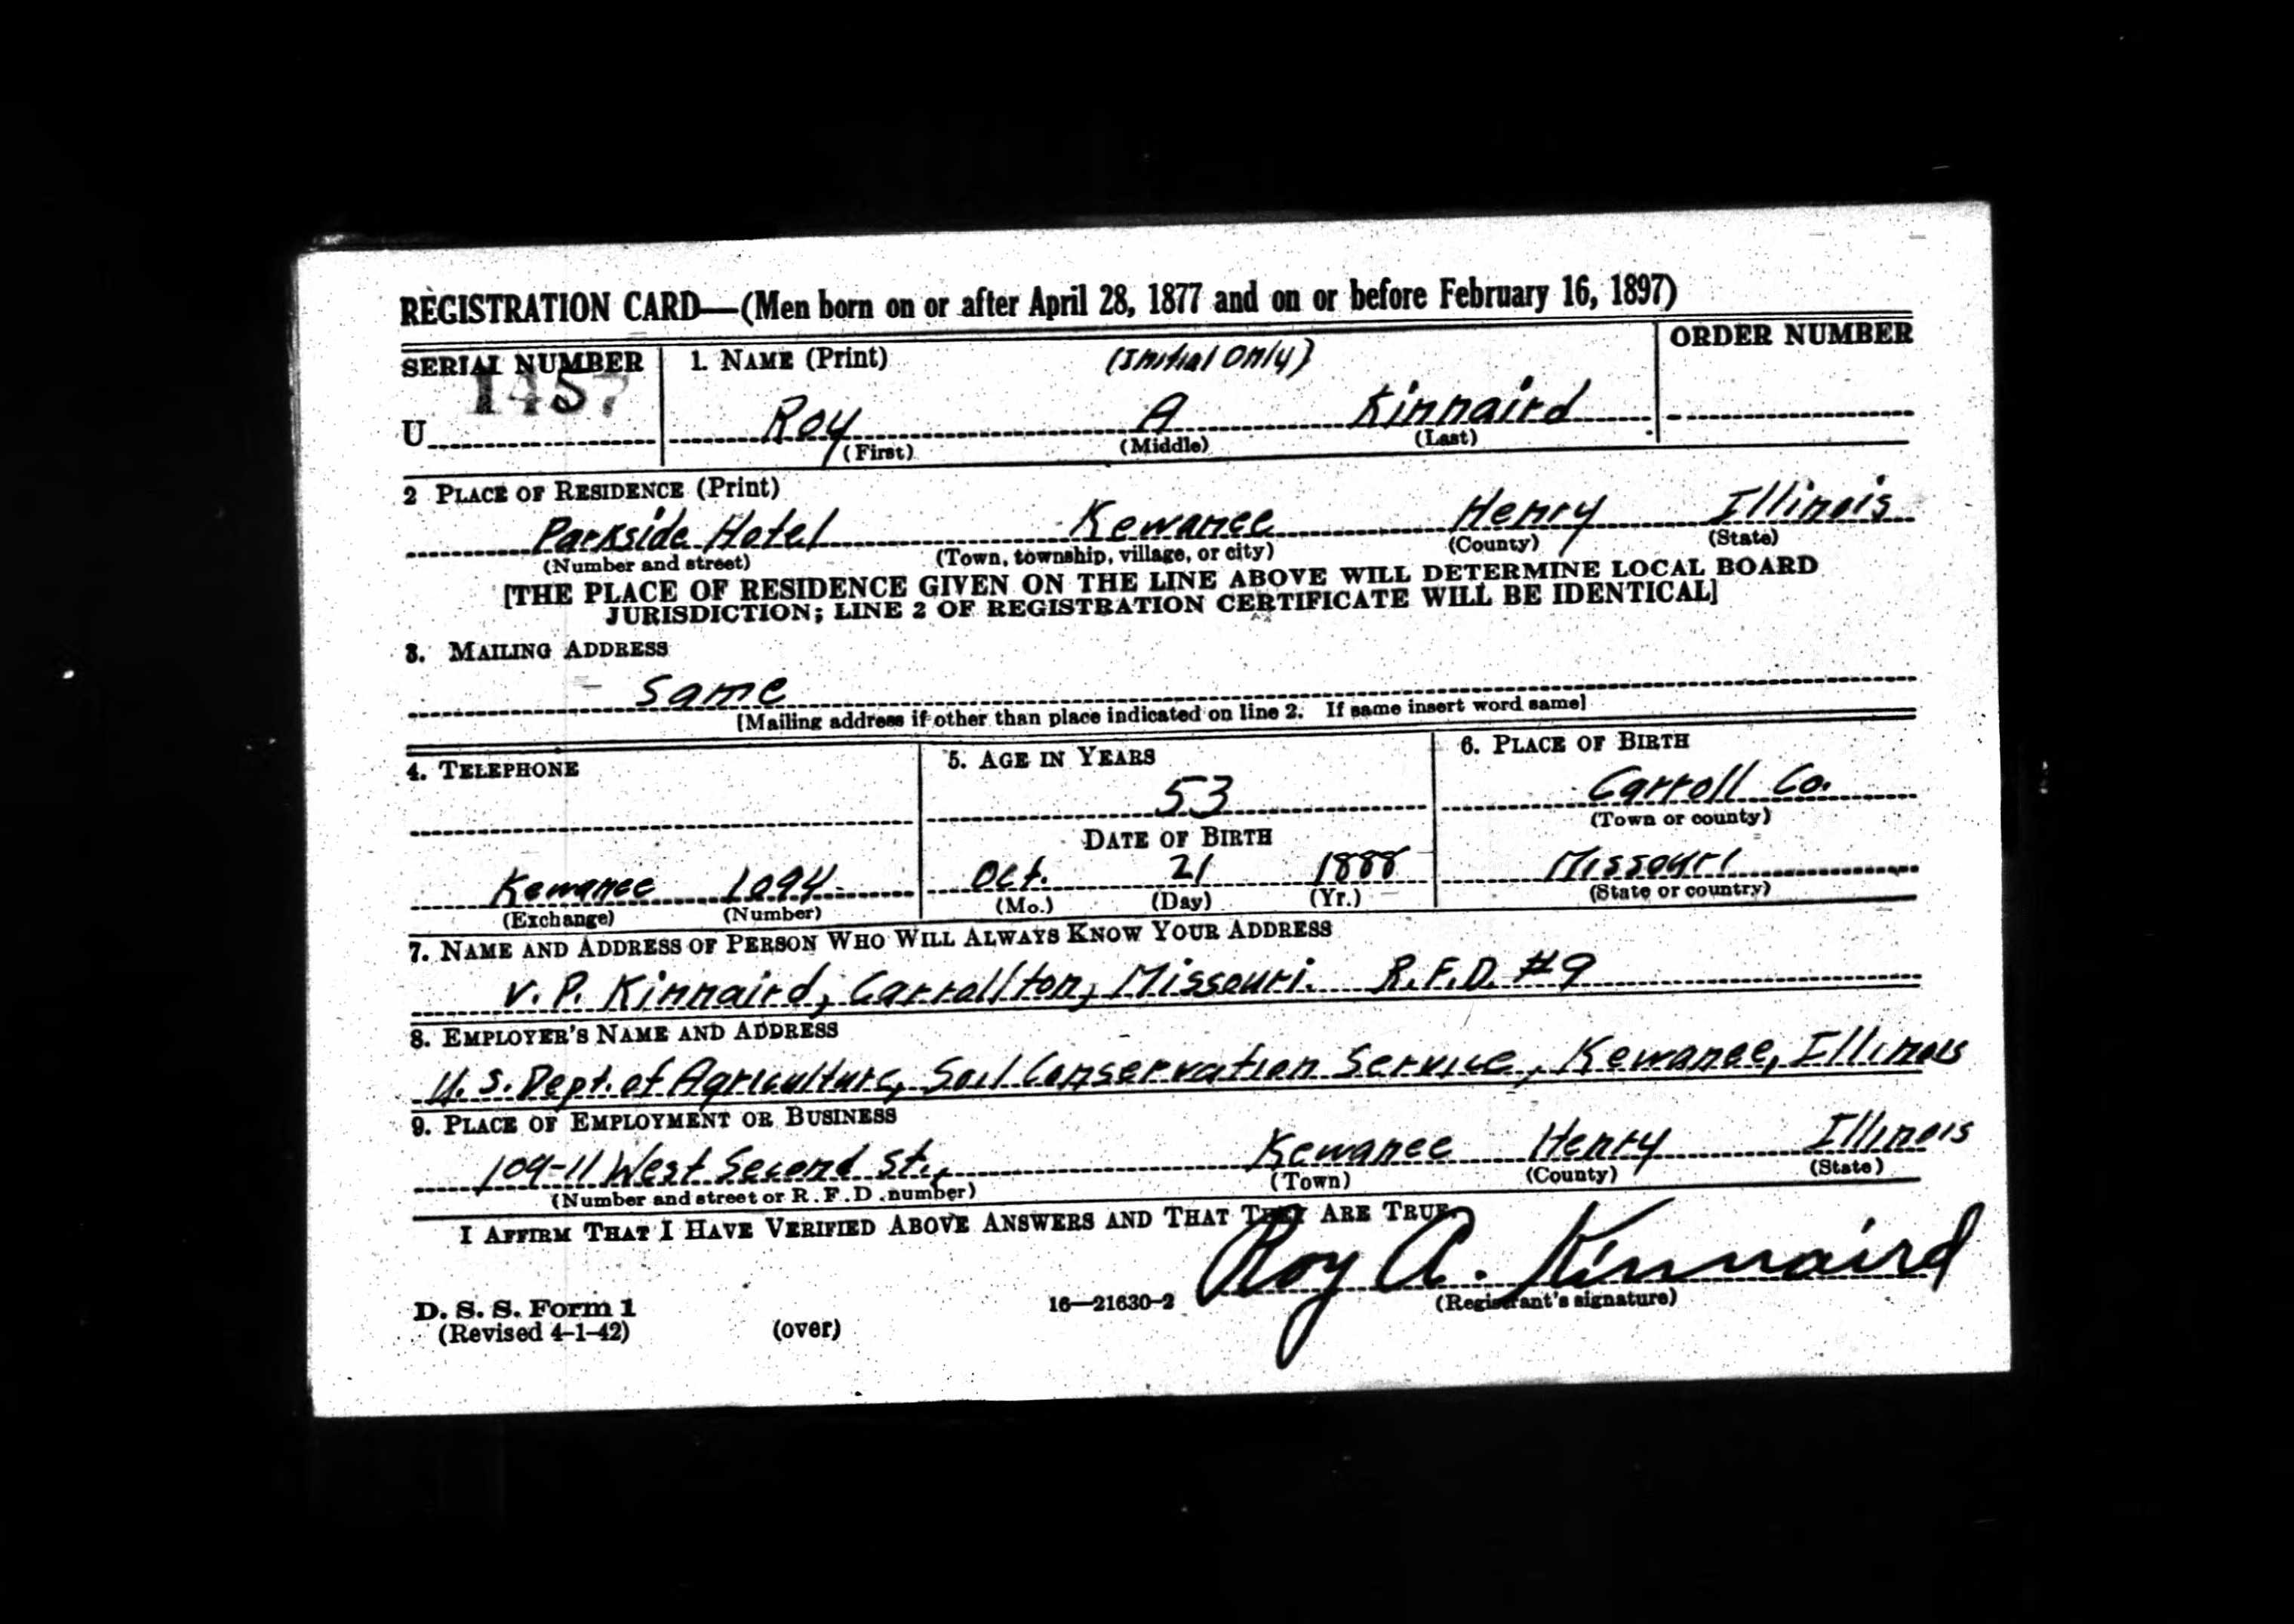 REGISTRATION CARD—(Men born on or after April 28, 1877 and on or before February 16, 1897)
SERIAL NUMBER 1. NAME (Print) (Initial Only) ORDER NUMBER
1457
U Roy A Kinnaird
(First) (Middle) (Last)
2 PLACE OF RESIDENCE (Print)
Parkside Hotel Kewanee Henry Illinois
(Number and street) (Town, township, village, or city) (County) (State)
[THE PLACE OF RESIDENCE GIVEN ON THE LINE ABOVE WILL DETERMINE LOCAL BOARD
JURISDICTION; LINE 2 OF REGISTRATION CERTIFICATE WILL BE IDENTICAL]
3. MAILING ADDRESS
Same
[Mailing address if other than place indicated on line 2. If same insert word same]
4. TELEPHONE 5. AGE IN YEARS 6. PLACE OF BIRTH
53 Carroll Co.
(Town or county)
DATE OF BIRTH
Kewanee 1094 Oct. 21 1888 Missouri
(Exchange) (Number) (Mo.) (Day) (Yr.) (State or country)
7. NAME AND ADDRESS OF PERSON WHO WILL ALWAYS KNOW YOUR ADDRESS
V. P. Kinnaird, Carrollton, Missouri. R.F.D. #9
8. EMPLOYER'S NAME AND ADDRESS
U. S. Dept. of Agriculture, Soil Conservation Service, Kewanee, Illinois
9. PLACE OF EMPLOYMENT OR BUSINESS
109-11 West Second St., Kewanee Henry Illinois
(Number and street or R. F. D. number) (Town) (County) (State)
I AFFIRM THAT I HAVE VERIFIED ABOVE ANSWERS AND THAT THEY ARE TRUE
Roy A. Kinnaird
D. S. S. Form 1 16—21630-2 (Registrant's signature)
(Revised 4-1-42) (over)